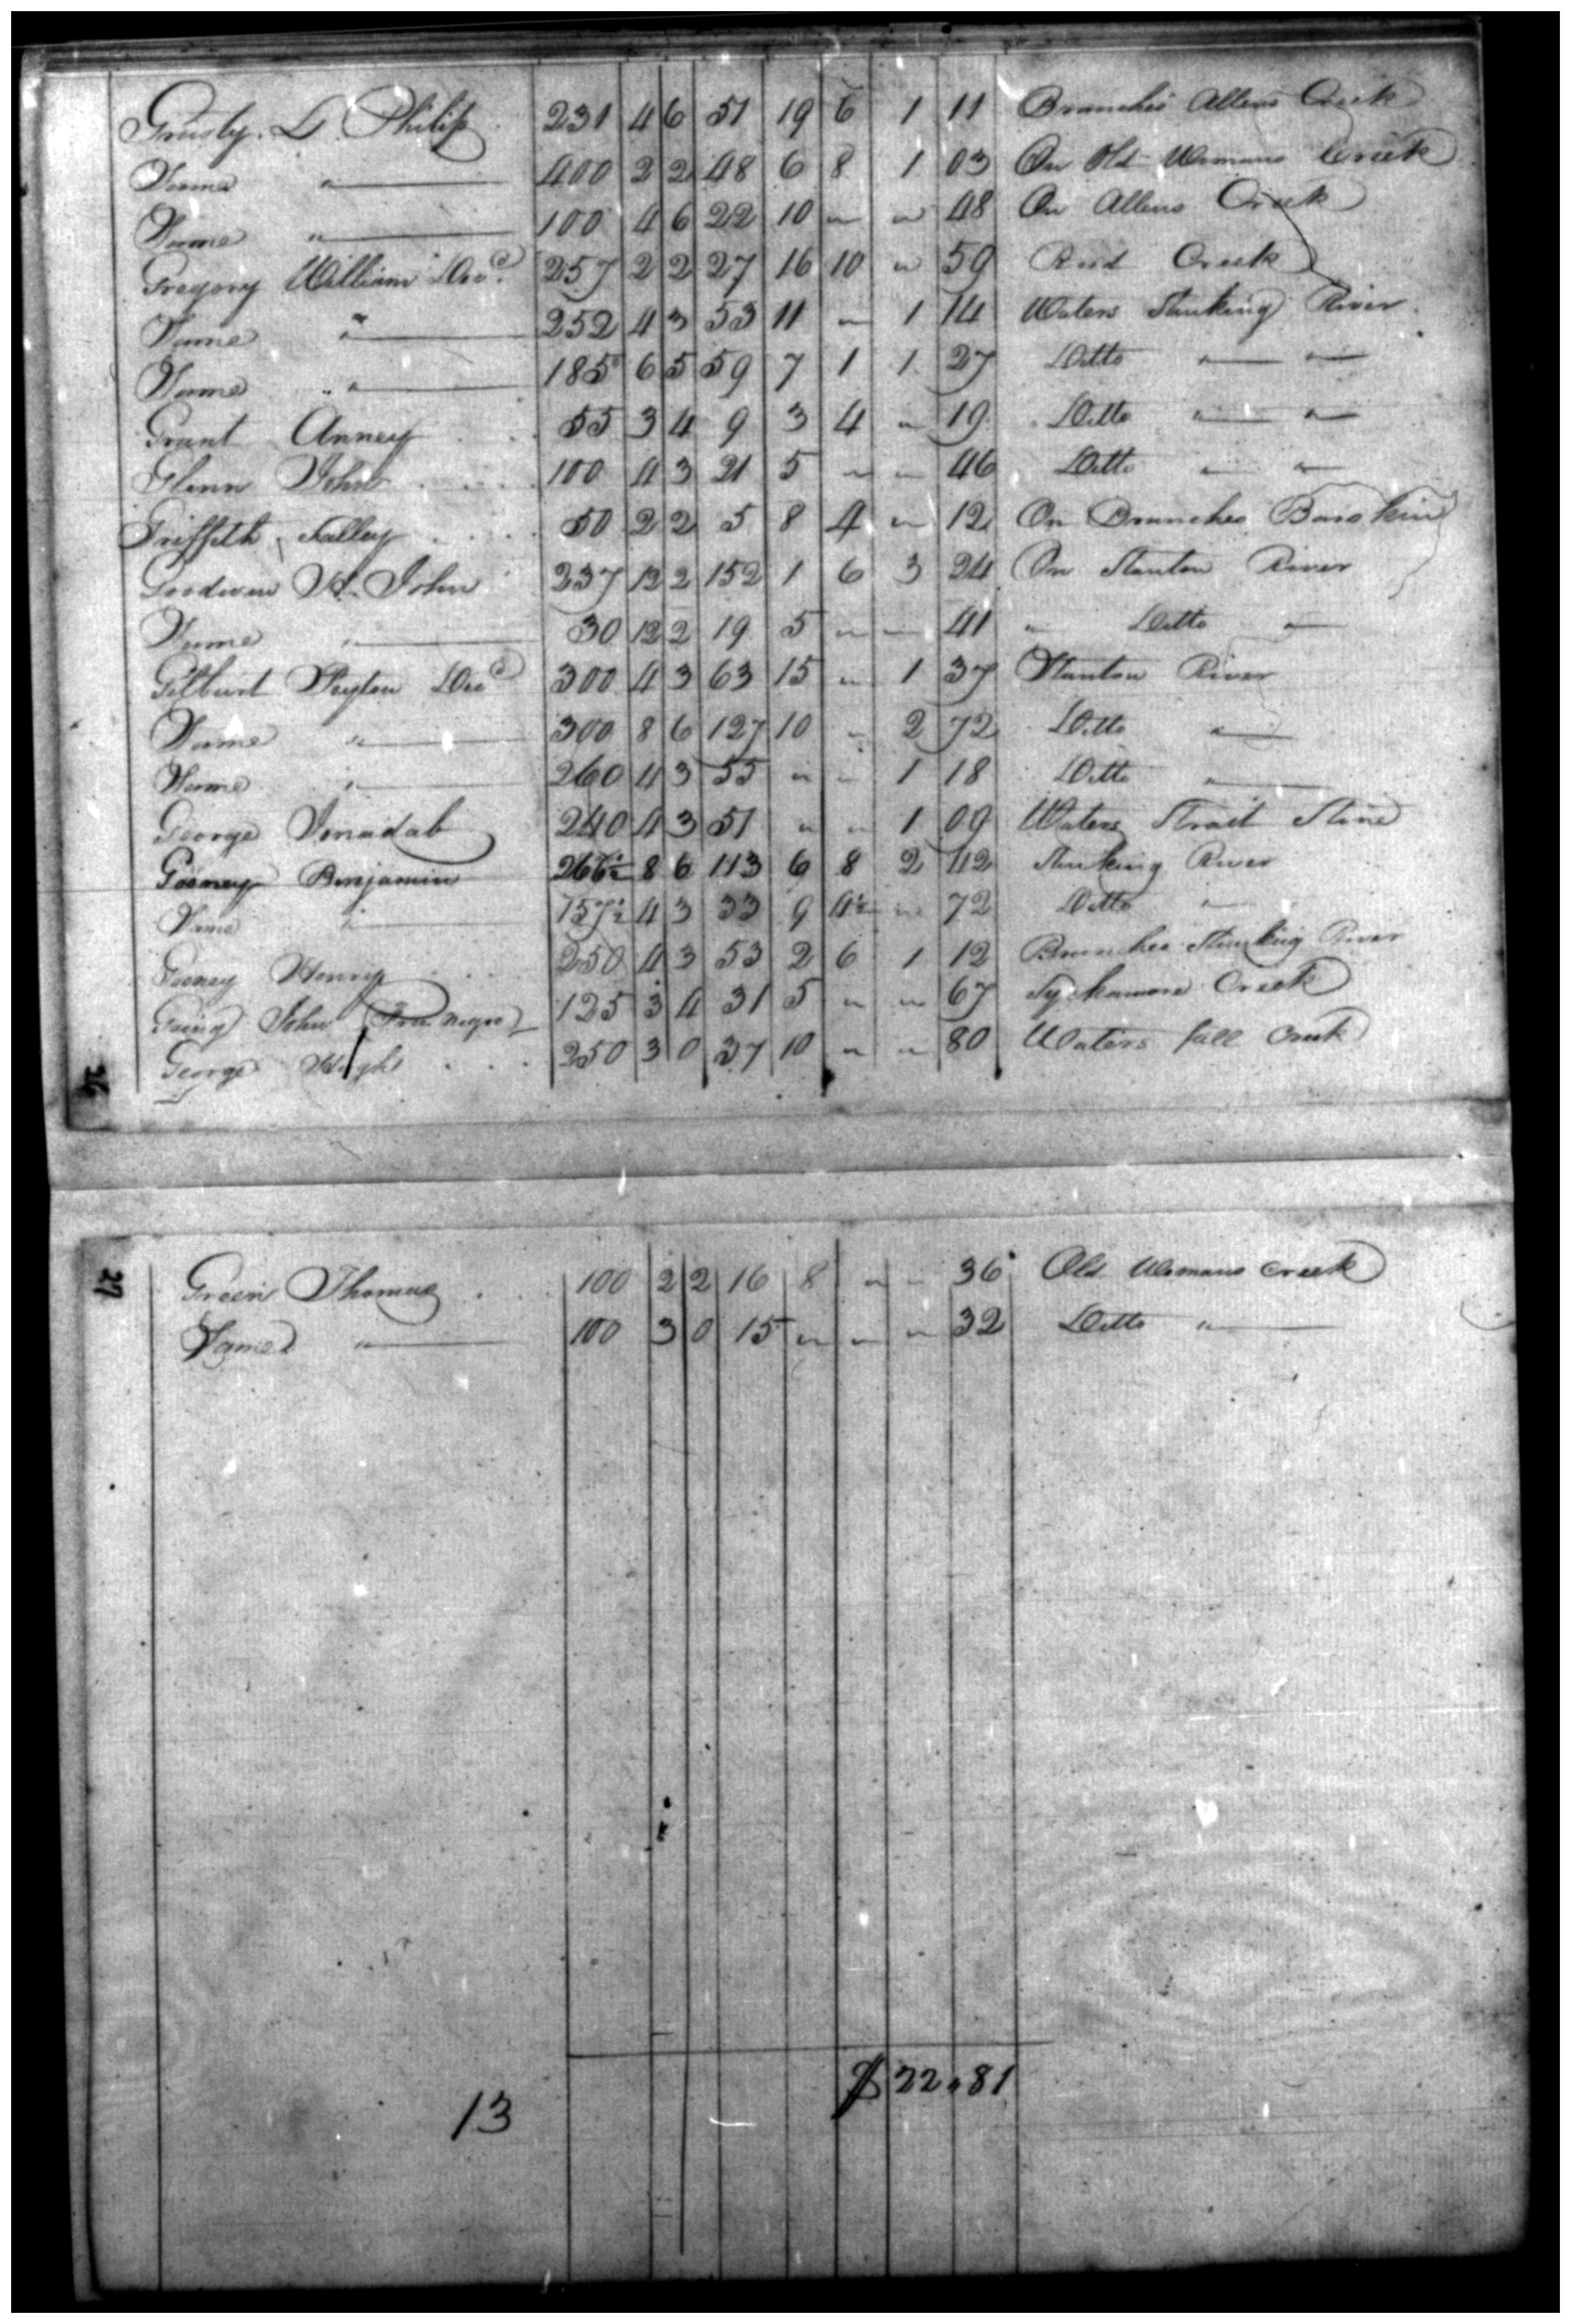 Grasty. L Philip 231 4 6 51 19 6 1 11 Branches Allens Creek
Same " 400 2 2 48 6 8 1 03 On Old Womans Creek
Same " 100 4 6 22 10 " " 48 On Allens Creek
Gregory William Decd. 257 2 2 27 16 10 " 59 Reed Creek
Same " 252 4 3 53 11 " 1 14 Waters Stinking River
Same " 185 6 5 59 7 1 1 27 Ditto " "
Grant Anney 55 3 4 9 3 4 " 19 Ditto " "
Glenn John 100 4 3 21 5 " " 46 Ditto " "
Griffith 50 2 2 5 8 4 " 12 On Branches Bearskin
Goodwin John 237 12 2 152 1 6 3 24 On Stanton River
Same " 30 12 2 19 5 " " 41 " Ditto "
Gilburt Peyton Decd 300 4 3 63 15 " 1 37 Stanton River
Same " 300 8 6 127 10 " 2 72 Ditto "
Same " 260 4 3 55 " " 1 18 Ditto "
George Jonadab 240 4 3 51 " " 1 09 Waters Strait Stone
Gosney Benjamin 266½ 8 6 113 6 8 2 42 Stinking River
Same " 157½ 4 3 33 9 4½ " 72 Ditto "
Gosney Henry 250 4 3 53 2 6 1 12 Branches Stinking River
Going John (Free Negroe) 125 3 4 31 5 " " 67 Syckamore Creek
George Hugh 250 3 0 37 10 " " 80 Waters fall Creek
26
27
Green Thomas 100 2 2 16 8 " " 36 Old Womans Creek
Same " 100 3 0 15 " " " 32 Ditto "
$ 22.81
13